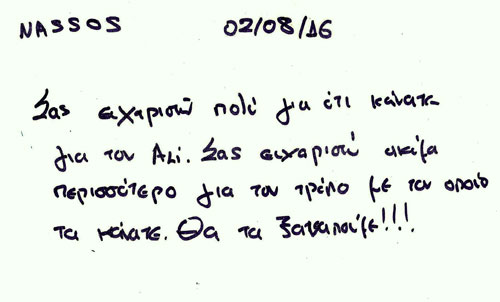 NASSOS 02/08/16
Σας ευχαριστώ πολύ για ότι κάνατε
για τον Αλί. Σας ευχαριστώ ακόμα
περισσότερο για τον τρόπο με τον οποίο
τα κάνατε. Θα τα ξαναπούμε!!!